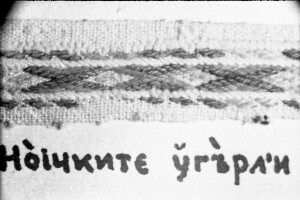 Нòічките ў̀гъ̀рл'и